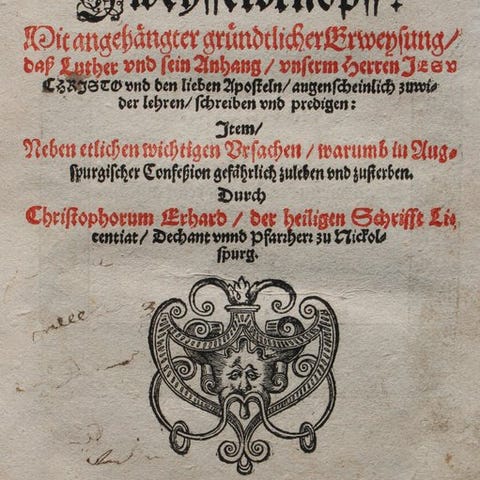 Mit angehängter gründtlicher Erweysung/
daß Luther vnd sein Anhang/ vnserm Herren JESV
CHRISTO vnd den lieben Aposteln/ augenscheinlich zuwi-
der lehren/ schreiben vnd predigen:
Item/
Neben etlichen wichtigen Vrsachen/ warumb in Aug-
spurgischer Confeßion gefährlich zuleben vnd zusterben.
Durch
Christophorum Erhard/ der heiligen Schrifft Li-
centiat/ Dechant vnnd Pfarrherr zu Nickol-
spurg.